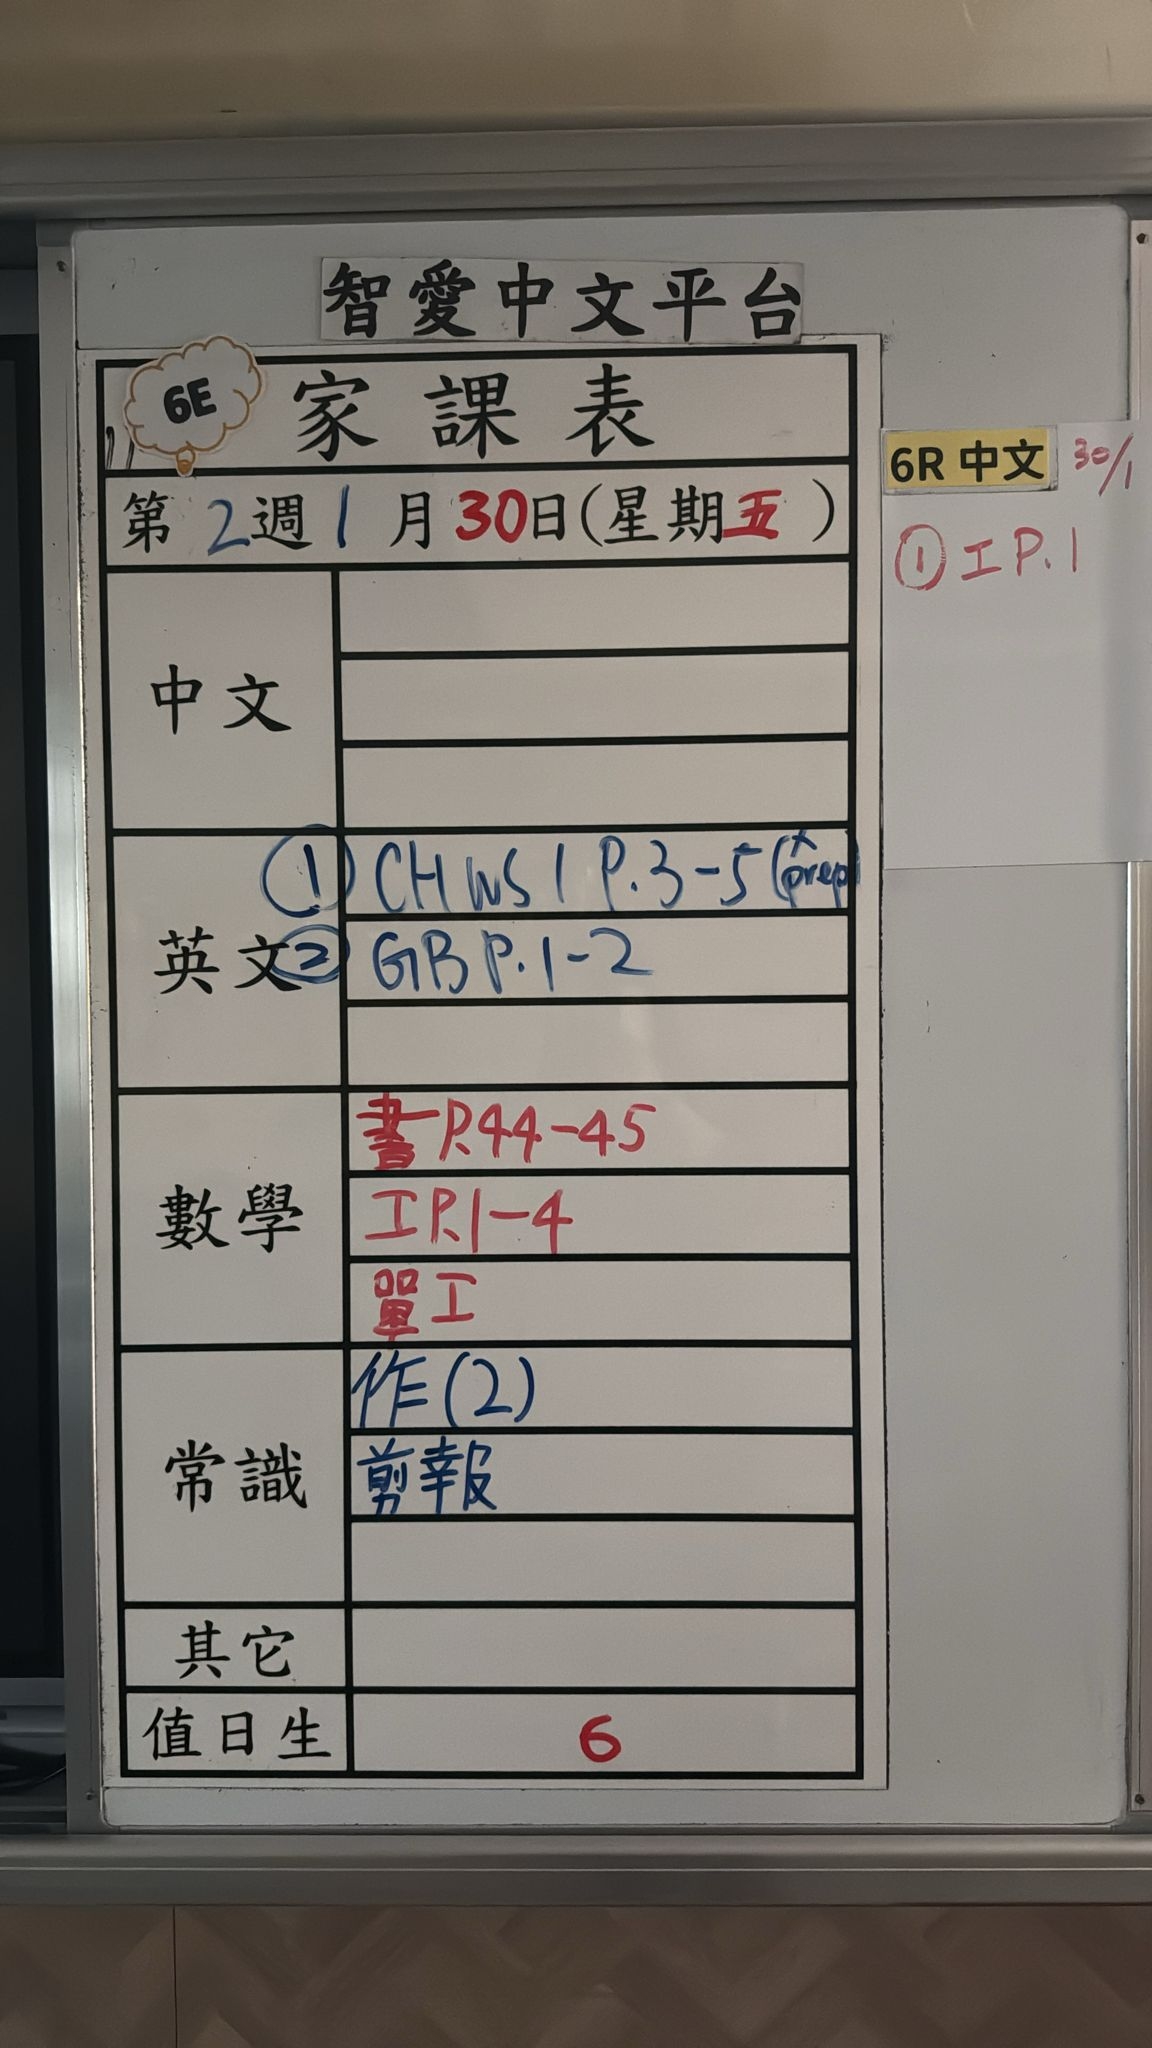 智愛中文平台
6E
家課表
第2週1月30日(星期五)
中文
英文
① CH WS 1 P.3-5 (x prep)
② GB P.1-2
數學
書 P.44-45
工 P.1-4
單工
常識
作(2)
剪報
其它
值日生
6
6R 中文 30/1
① 工 P.1